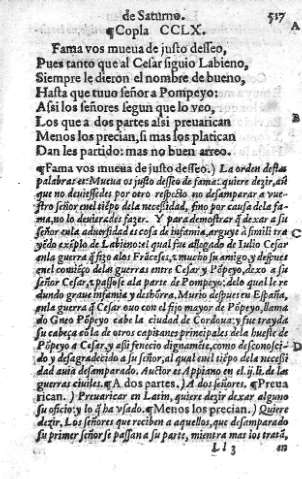 de Saturno. 517
¶Copla CCLX.
Fama vos mueua de justo desseo,
Pues tanto que al Cesar siguio Labieno,
Siempre le dieron el nombre de bueno,
Hasta que tuuo señor a Pompeyo:
Assi los señores segun que lo veo,
Los que a dos partes assi preuarican
Menos los precian, si mas los platican
Dan les partido: mas no buen arreo.
¶Fama vos mueua de justo desseo.) La orden destas
palabras es: Mueua os justo desseo de fama: quiere dezir, assi
que no deuiessedes por otro respecto no desamparar a vue-
stro señor enel tiēpo dela necessidad, sino por causa dela fa-
ma, no lo deuierades fazer. Y para demostrar q̄ dexar a su
señor enla aduersidad es cosa de infamia, arguye à simili tra
yēdo exēplo de Labieno: el qual fue allegado de Iulio Cesar
enla guerra q̄ fizo a los Frāceses, z mucho su amigo, y despues
enel comiēço delas guerras entre Cesar y Pōpeyo, dexo a su
señor Cesar, z passose ala parte de Pompeyo: delo qual le re
dundo graue infamia y desbōrra. Murio despues en España,
enla guerra q̄ Cesar ouo con el fijo mayor de Pōpeyo, llama
do Gneo Pōpeyo cabe la ciudad de Cordoua: y fue trayda
su cabeça cō la de otros capitanes principales dela hueste de
Pōpeyo a Cesar, y assi fenecio dignamēte, como desconosci-
do y desagradecido a su señor, al qual enel tiēpo dela necessi
dad auia desamparado. Auctor es Appiano en el.ij.li. de las
guerras ciuiles. ¶A dos partes.) A dos señores. ¶Preua
rican.) Preuaricar en Latin, quiere dezir dexar alguno
su oficio: y lo q̄ ha vsado. ¶Menos los precian.) Quiere
dezir. Los señores que reciben a aquellos, que desamparado
su primer señor se passan a su parte, mientra mas los tratā,
Ll 3 en
A
B
C
D